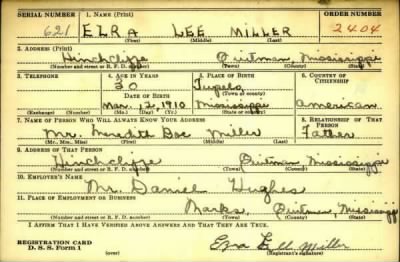 SERIAL NUMBER 1. NAME (Print) ORDER NUMBER
621 ELRA LEE MILLER 2404
(First) (Middle) (Last)
2. ADDRESS (Print)
Hinchcliffe Quitman Mississippi
(Number and street or R. F. D. number) (Town) (County) (State)
3. TELEPHONE 4. AGE IN YEARS 5. PLACE OF BIRTH 6. COUNTRY OF CITIZENSHIP
30 Tupelo
DATE OF BIRTH (Town or county)
Mar. 12, 1910 Mississippi American
(Exchange) (Number) (Mo.) (Day) (Yr.) (State or country)
7. NAME OF PERSON WHO WILL ALWAYS KNOW YOUR ADDRESS 8. RELATIONSHIP OF THAT PERSON
Mr. Meredith Miller Father
(Mr., Mrs., Miss) (First) (Middle) (Last)
9. ADDRESS OF THAT PERSON
Hinchcliffe Quitman Mississippi
(Number and street or R. F. D. number) (Town) (County) (State)
10. EMPLOYER'S NAME
Mr. Daniel Hughes
11. PLACE OF EMPLOYMENT OR BUSINESS
Marks, Quitman, Mississippi
(Number and street or R. F. D. number) (Town) (County) (State)
I AFFIRM THAT I HAVE VERIFIED ABOVE ANSWERS AND THAT THEY ARE TRUE.
REGISTRATION CARD
D. S. S. Form 1 (over) Miller
(Registrant's signature)